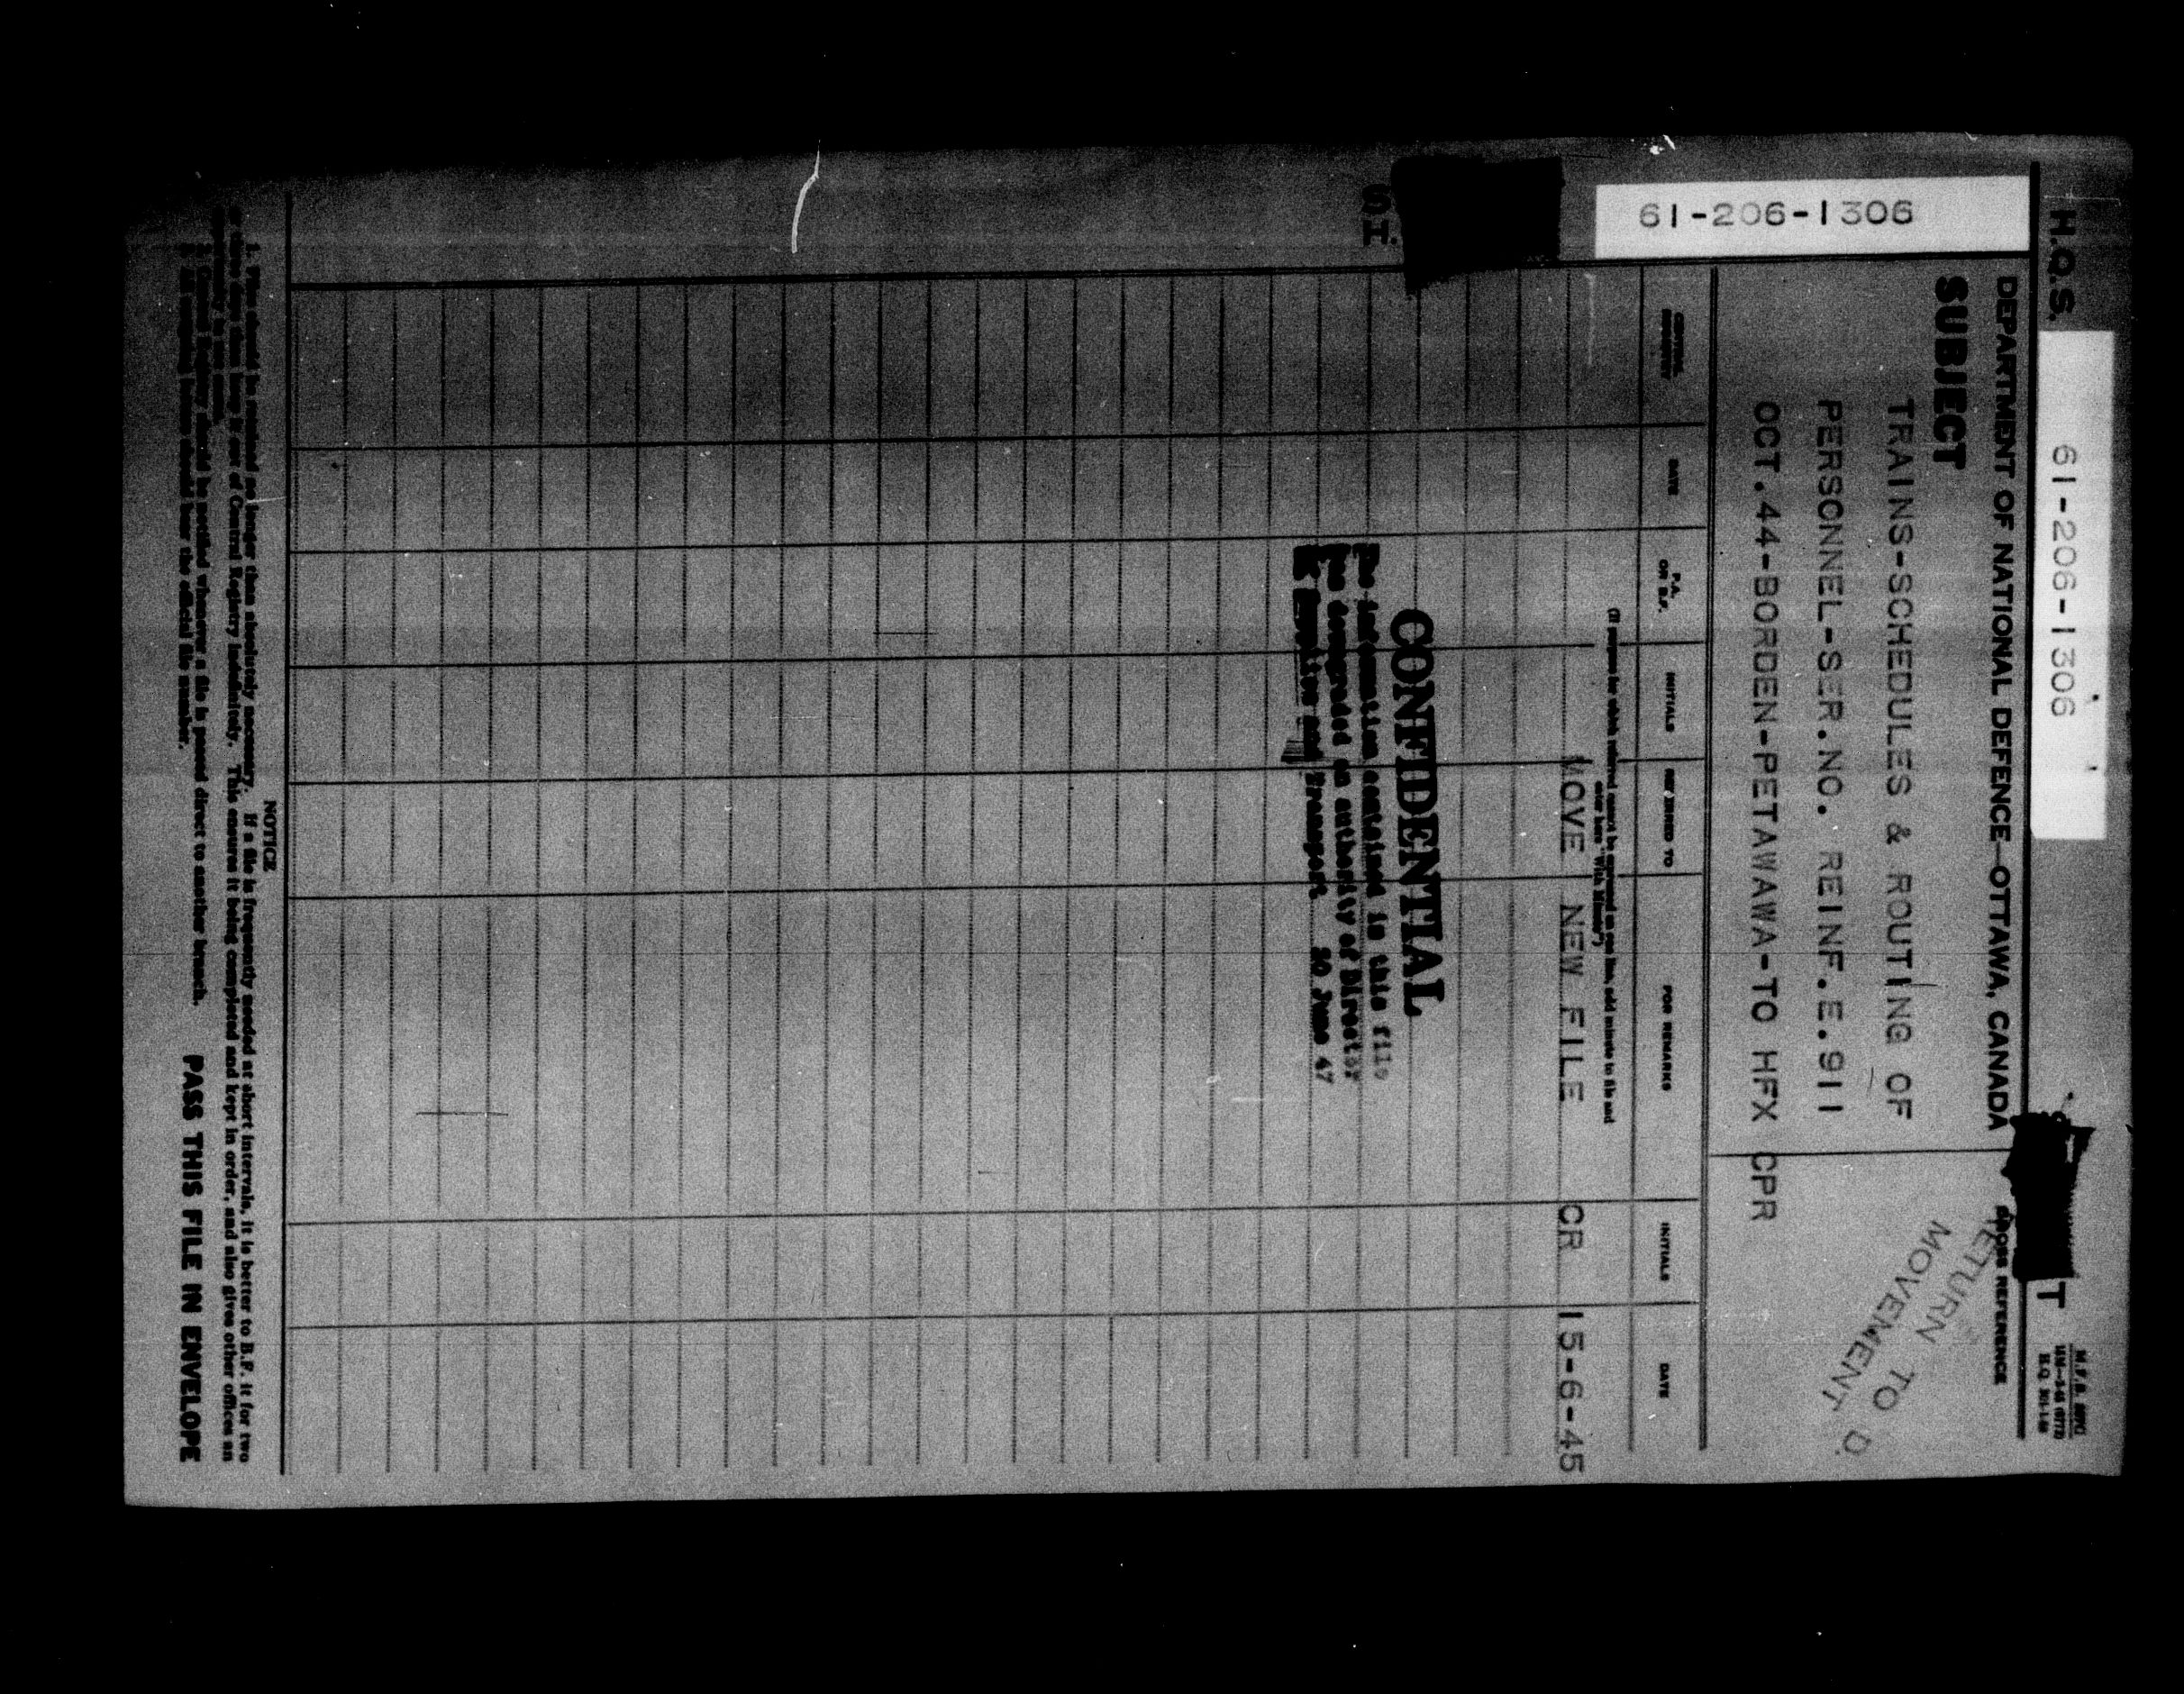 H.Q.S. 61-206-1306 T
M.F.B.
61-206-1306
DEPARTMENT OF NATIONAL DEFENCE—OTTAWA, CANADA
CROSS REFERENCE
SUBJECT
TRAINS-SCHEDULES & ROUTING OF
PERSONNEL-SER.NO. REINF.E.911
OCT.44-BORDEN-PETAWAWA-TO HFX CPR
RETURN TO D.
MOVEMENT
DATE P.A. OR B.F. INITIALS REFERRED TO FOR REMARKS INITIALS DATE
(If purpose for which referred cannot be expressed on one line, add minute to file and
enter here "With Minute")
MOVE NEW FILE CR 15-6-45
CONFIDENTIAL
The information contained in this file
has downgraded on authority of Director
and Transport 20 June 47
NOTICE
1. Files should be retained no longer than absolutely necessary. If a file is frequently needed at short intervals, it is better to B.F. it for two
or three days than keep it out of Central Registry indefinitely. This ensures it being completed and kept in order, and also gives other offices an
opportunity to
2. Central Registry should be notified whenever a file is passed direct to another branch.
bear the official file number.
PASS THIS FILE IN ENVELOPE